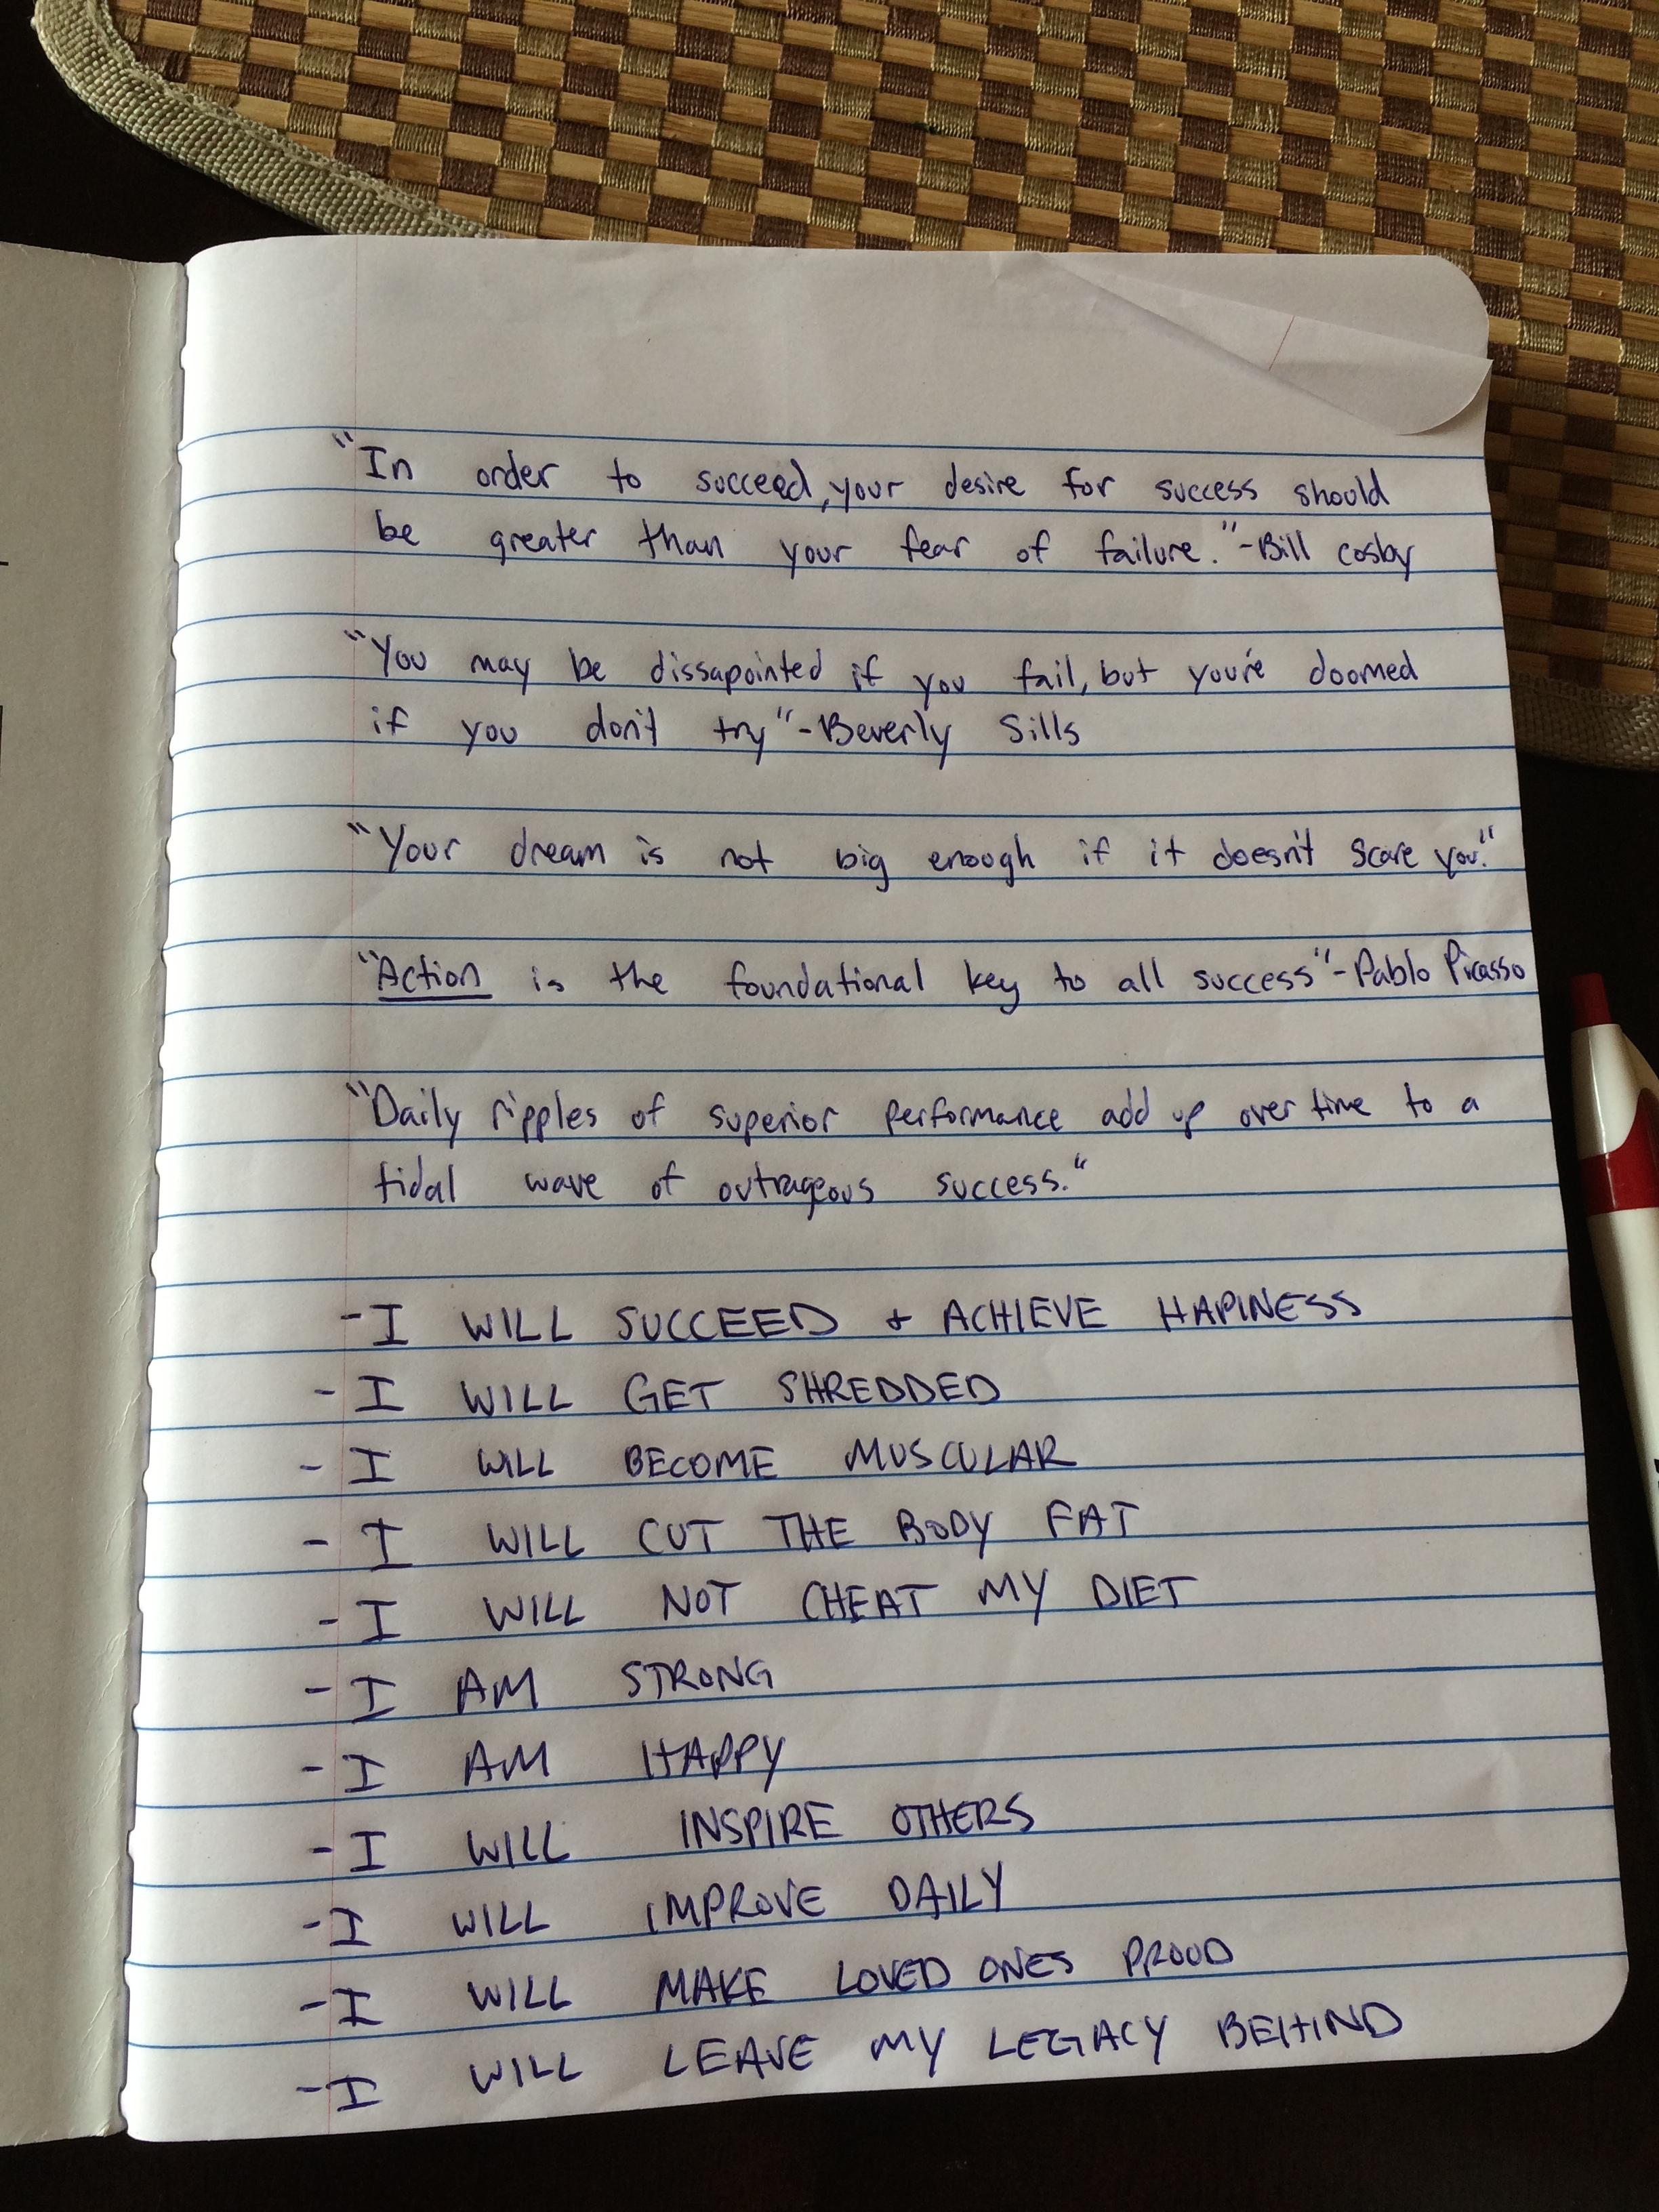 "In order to succeed, your desire for success should
be greater than your fear of failure."-Bill Cosby
"You may be dissapointed if you fail, but you're doomed
if you don't try"-Beverly Sills
"Your dream is not big enough if it doesn't scare you."
"Action is the foundational key to all success"-Pablo Picasso
"Daily ripples of superior performance add up over time to a
tidal wave of outrageous success."
-I WILL SUCCEED + ACHIEVE HAPINESS
-I WILL GET SHREDDED
-I WILL BECOME MUSCULAR
-I WILL CUT THE BODY FAT
-I WILL NOT CHEAT MY DIET
-I AM STRONG
-I AM HAPPY
-I WILL INSPIRE OTHERS
-I WILL IMPROVE DAILY
-I WILL MAKE LOVED ONES PROUD
-I WILL LEAVE MY LEGACY BEHIND